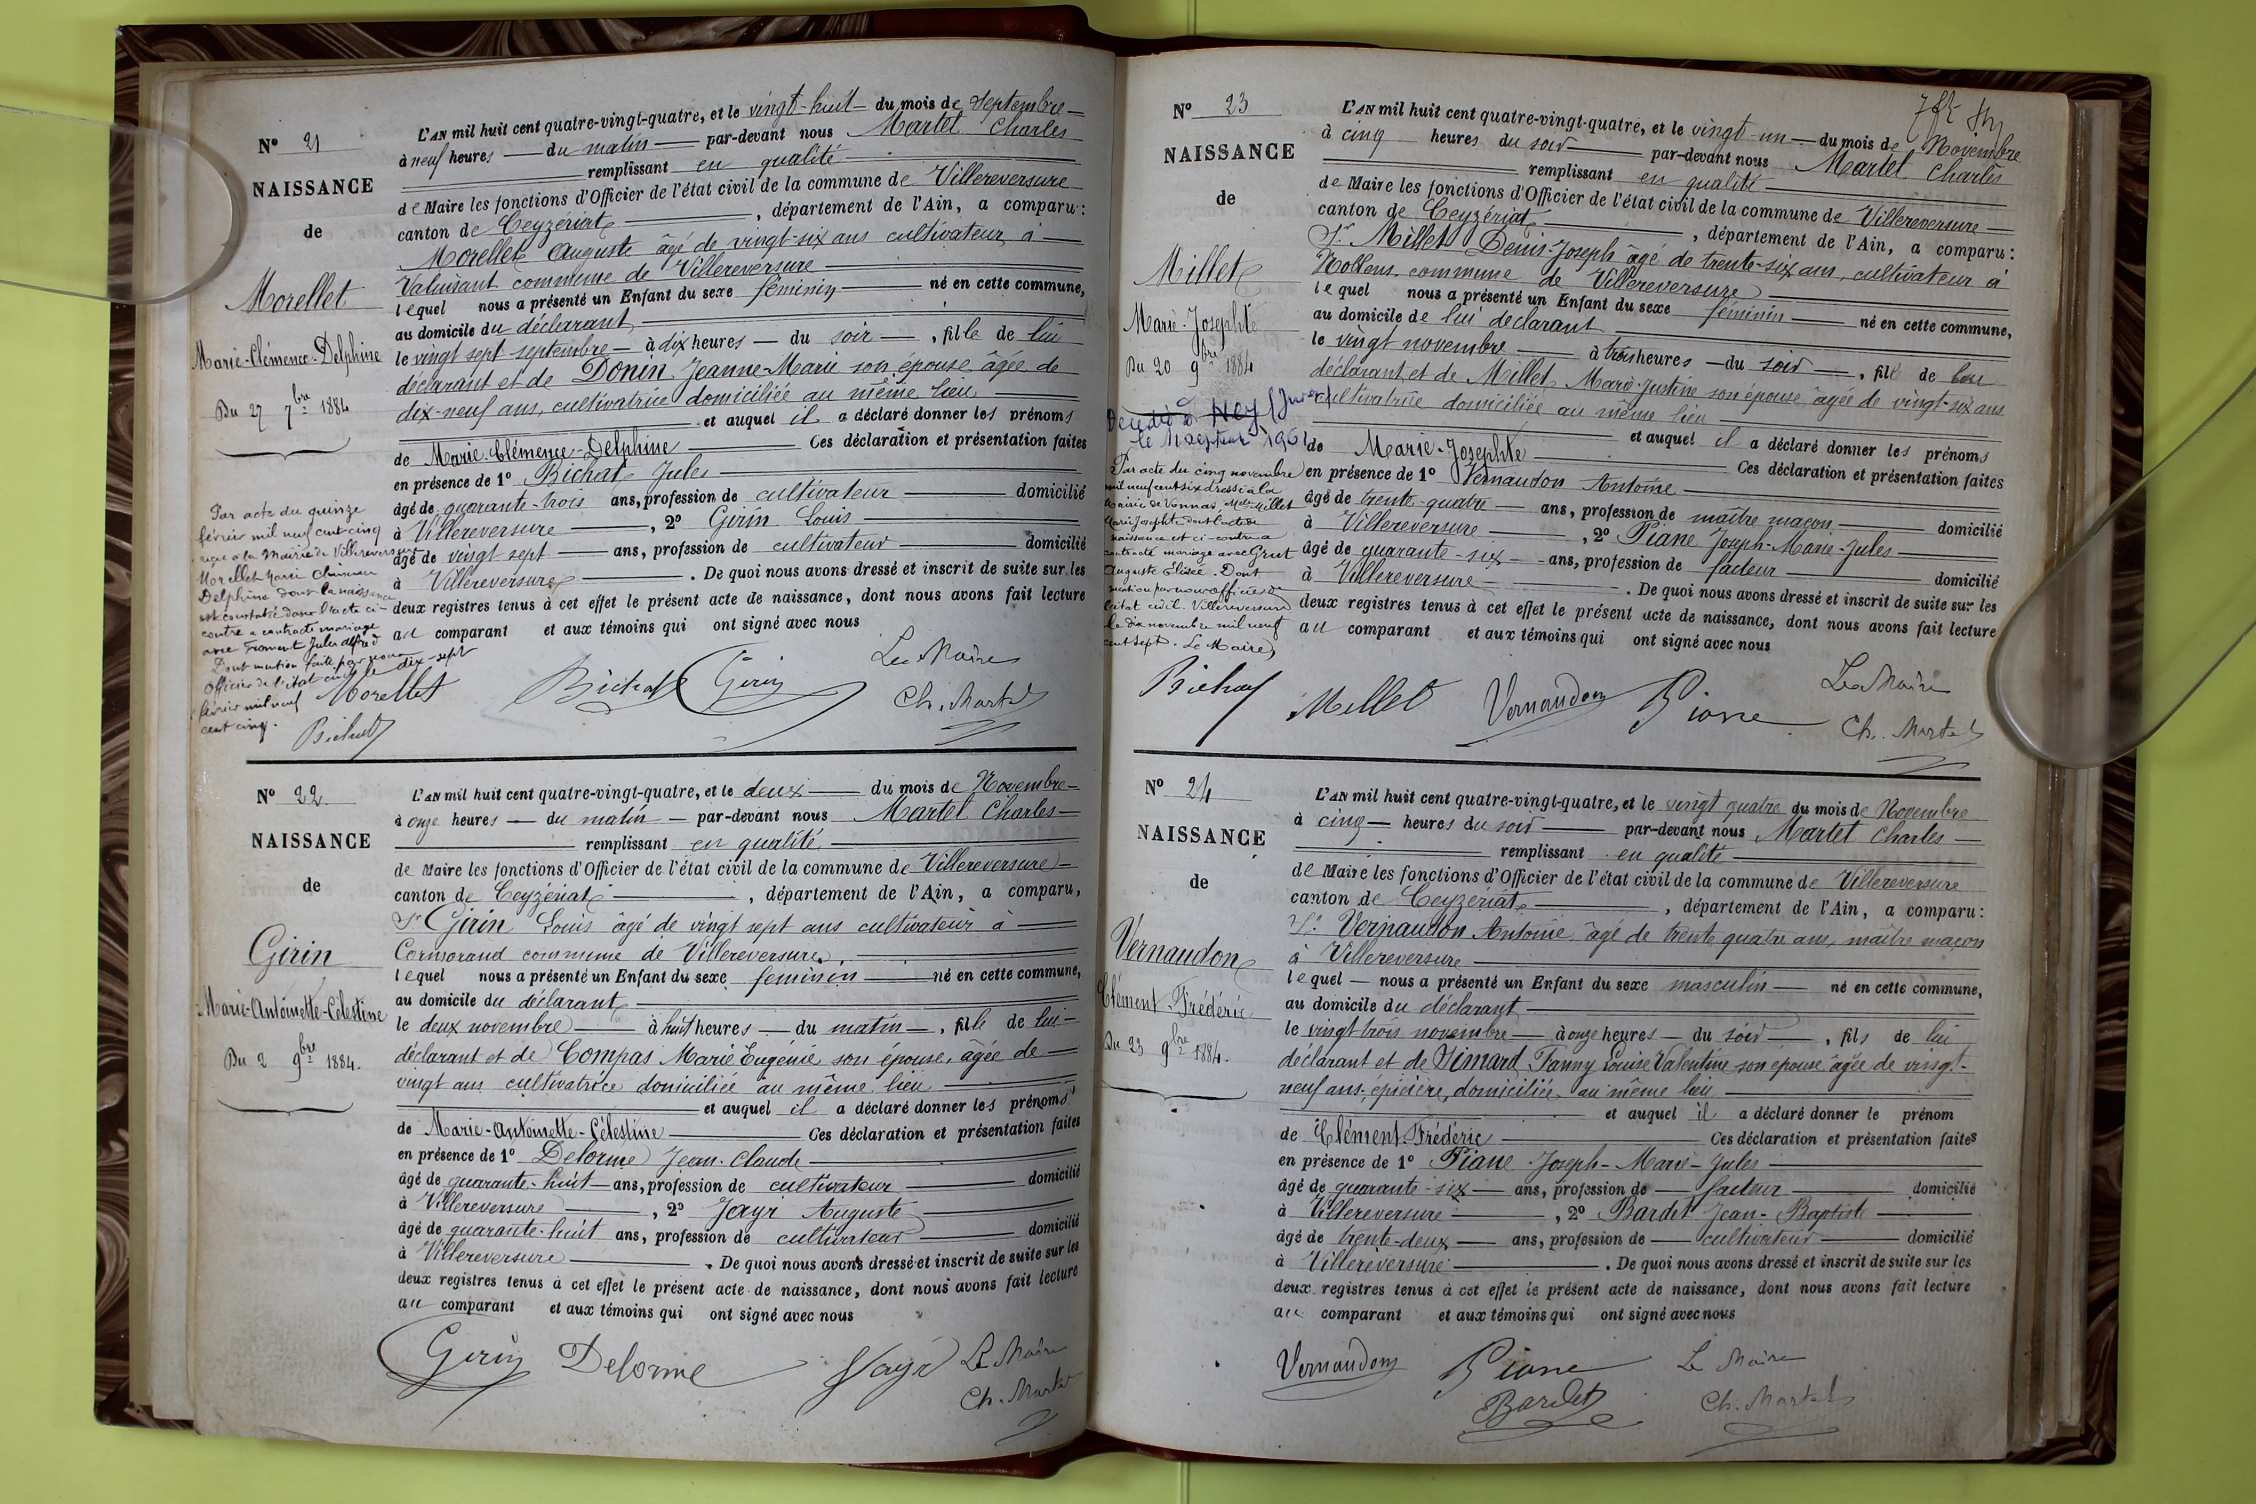 N° 21
NAISSANCE
de
Morellet
Marie-Clémence-Delphine
Du 27 7bre 1884
Par acte du quinze
février mil neuf cent cinq
reçu à la Mairie de Villereversure
Morellet Marie Clémence
Delphine dont la naissance
est constatée dans l'acte ci-
contre a contracté mariage
avec Froment Jules Alfred
Dont mention faite par nous
Officier de l'état civil le dix-sept
février mil neuf
cent cinq.
Bichat
L'AN mil huit cent quatre-vingt-quatre, et le vingt-huit du mois de septembre
à neuf heures du matin par-devant nous Martel Charles
remplissant en qualité
de Maire les fonctions d'Officier de l'état civil de la commune de Villereversure
canton de Ceyzériat, département de l'Ain, a comparu:
Morellet Auguste âgé de vingt-six ans cultivateur à
Valuisant commune de Villereversure
lequel nous a présenté un Enfant du sexe féminin né en cette commune,
au domicile du déclarant
le vingt sept septembre à dix heures du soir, fille de lui
déclarant et de Donin Jeanne-Marie son épouse âgée de
dix-neuf ans, cultivatrice domiciliée au même lieu
et auquel il a déclaré donner les prénoms
de Marie-Clémence-Delphine Ces déclaration et présentation faites
en présence de 1° Bichat Jules
âgé de quarante-trois ans, profession de cultivateur domicilié
à Villereversure, 2° Girin Louis
âgé de vingt sept ans, profession de cultivateur domicilié
à Villereversure. De quoi nous avons dressé et inscrit de suite sur les
deux registres tenus à cet effet le présent acte de naissance, dont nous avons fait lecture
au comparant et aux témoins qui ont signé avec nous
Morellet Bichat Girin Le Maire
Ch. Martel
N° 22
NAISSANCE
de
Girin
Marie-Antoinette-Célestine
Du 2 9bre 1884.
L'AN mil huit cent quatre-vingt-quatre, et le deux du mois de Novembre
à onze heures du matin par-devant nous Martel Charles
remplissant en qualité
de Maire les fonctions d'Officier de l'état civil de la commune de Villereversure
canton de Ceyzériat, département de l'Ain, a comparu,
Sr Girin Louis âgé de vingt sept ans cultivateur à
Cormorand commune de Villereversure,
lequel nous a présenté un Enfant du sexe féminin né en cette commune,
au domicile du déclarant
le deux novembre à huit heures du matin, fille de lui
déclarant et de Compas Marie Eugénie son épouse, âgée de
vingt ans cultivatrice domiciliée au même lieu
et auquel il a déclaré donner les prénoms
de Marie-Antoinette-Célestine Ces déclaration et présentation faites
en présence de 1° Delorme Jean-Claude
âgé de quarante-huit ans, profession de cultivateur domicilié
à Villereversure, 2° Jayr Auguste
âgé de quarante-huit ans, profession de cultivateur domicilié
à Villereversure. De quoi nous avons dressé et inscrit de suite sur les
deux registres tenus à cet effet le présent acte de naissance, dont nous avons fait lecture
au comparant et aux témoins qui ont signé avec nous
Girin Delorme Jayr Le Maire
Ch. Martel
N° 23
NAISSANCE
de
Millet
Marie-Josephte
Du 20 9bre 1884
Décédée à Hey (Jura)
le 11 septembre 1961
Par acte du cinq novembre
mil neuf cent six dressé à la
Mairie de Vonnas, Melle Millet
Marie Josephte dont l'acte de
naissance est ci-contre a
contracté mariage avec Grut
Auguste Élisée. Dont
mention par nous officier de
l'état civil. Villereversure
le dix novembre mil neuf
cent sept. Le Maire
Bichat
L'AN mil huit cent quatre-vingt-quatre, et le vingt-un du mois de Novembre
à cinq heures du soir par-devant nous Martel Charles
remplissant en qualité
de Maire les fonctions d'Officier de l'état civil de la commune de Villereversure
canton de Ceyzériat, département de l'Ain, a comparu:
Sr Millet Denis-Joseph âgé de trente-six ans, cultivateur à
Noblens commune de Villereversure
lequel nous a présenté un Enfant du sexe féminin né en cette commune,
au domicile de lui déclarant
le vingt novembre à trois heures du soir, fille de lui
déclarant et de Millet Marie-Justine son épouse âgée de vingt-six ans
cultivatrice domiciliée au même lieu
et auquel il a déclaré donner les prénoms
de Marie-Josephte Ces déclaration et présentation faites
en présence de 1° Vernaudon Antoine
âgé de trente-quatre ans, profession de maître maçon domicilié
à Villereversure, 2° Piane Joseph-Marie-Jules
âgé de quarante-six ans, profession de facteur domicilié
à Villereversure. De quoi nous avons dressé et inscrit de suite sur les
deux registres tenus à cet effet le présent acte de naissance, dont nous avons fait lecture
au comparant et aux témoins qui ont signé avec nous
Millet Vernaudon Piane Le Maire
Ch. Martel
N° 24
NAISSANCE
de
Vernaudon
Clément-Frédéric
Du 23 9bre 1884.
L'AN mil huit cent quatre-vingt-quatre, et le vingt quatre du mois de Novembre
à cinq heures du soir par-devant nous Martel Charles
remplissant en qualité
de Maire les fonctions d'Officier de l'état civil de la commune de Villereversure
canton de Ceyzériat, département de l'Ain, a comparu:
Sr Vernaudon Antoine âgé de trente quatre ans, maître maçon
à Villereversure
lequel nous a présenté un Enfant du sexe masculin né en cette commune,
au domicile du déclarant
le vingt trois novembre à onze heures du soir, fils de lui
déclarant et de Simard Fanny Louise Valentine son épouse âgée de vingt-
neuf ans, épicière, domiciliée au même lieu
et auquel il a déclaré donner le prénom
de Clément-Frédéric Ces déclaration et présentation faites
en présence de 1° Piane Joseph-Marie-Jules
âgé de quarante-six ans, profession de facteur domicilié
à Villereversure, 2° Bardet Jean-Baptiste
âgé de trente-deux ans, profession de cultivateur domicilié
à Villereversure. De quoi nous avons dressé et inscrit de suite sur les
deux registres tenus à cet effet le présent acte de naissance, dont nous avons fait lecture
au comparant et aux témoins qui ont signé avec nous
Vernaudon Piane Le Maire
Bardet Ch. Martel